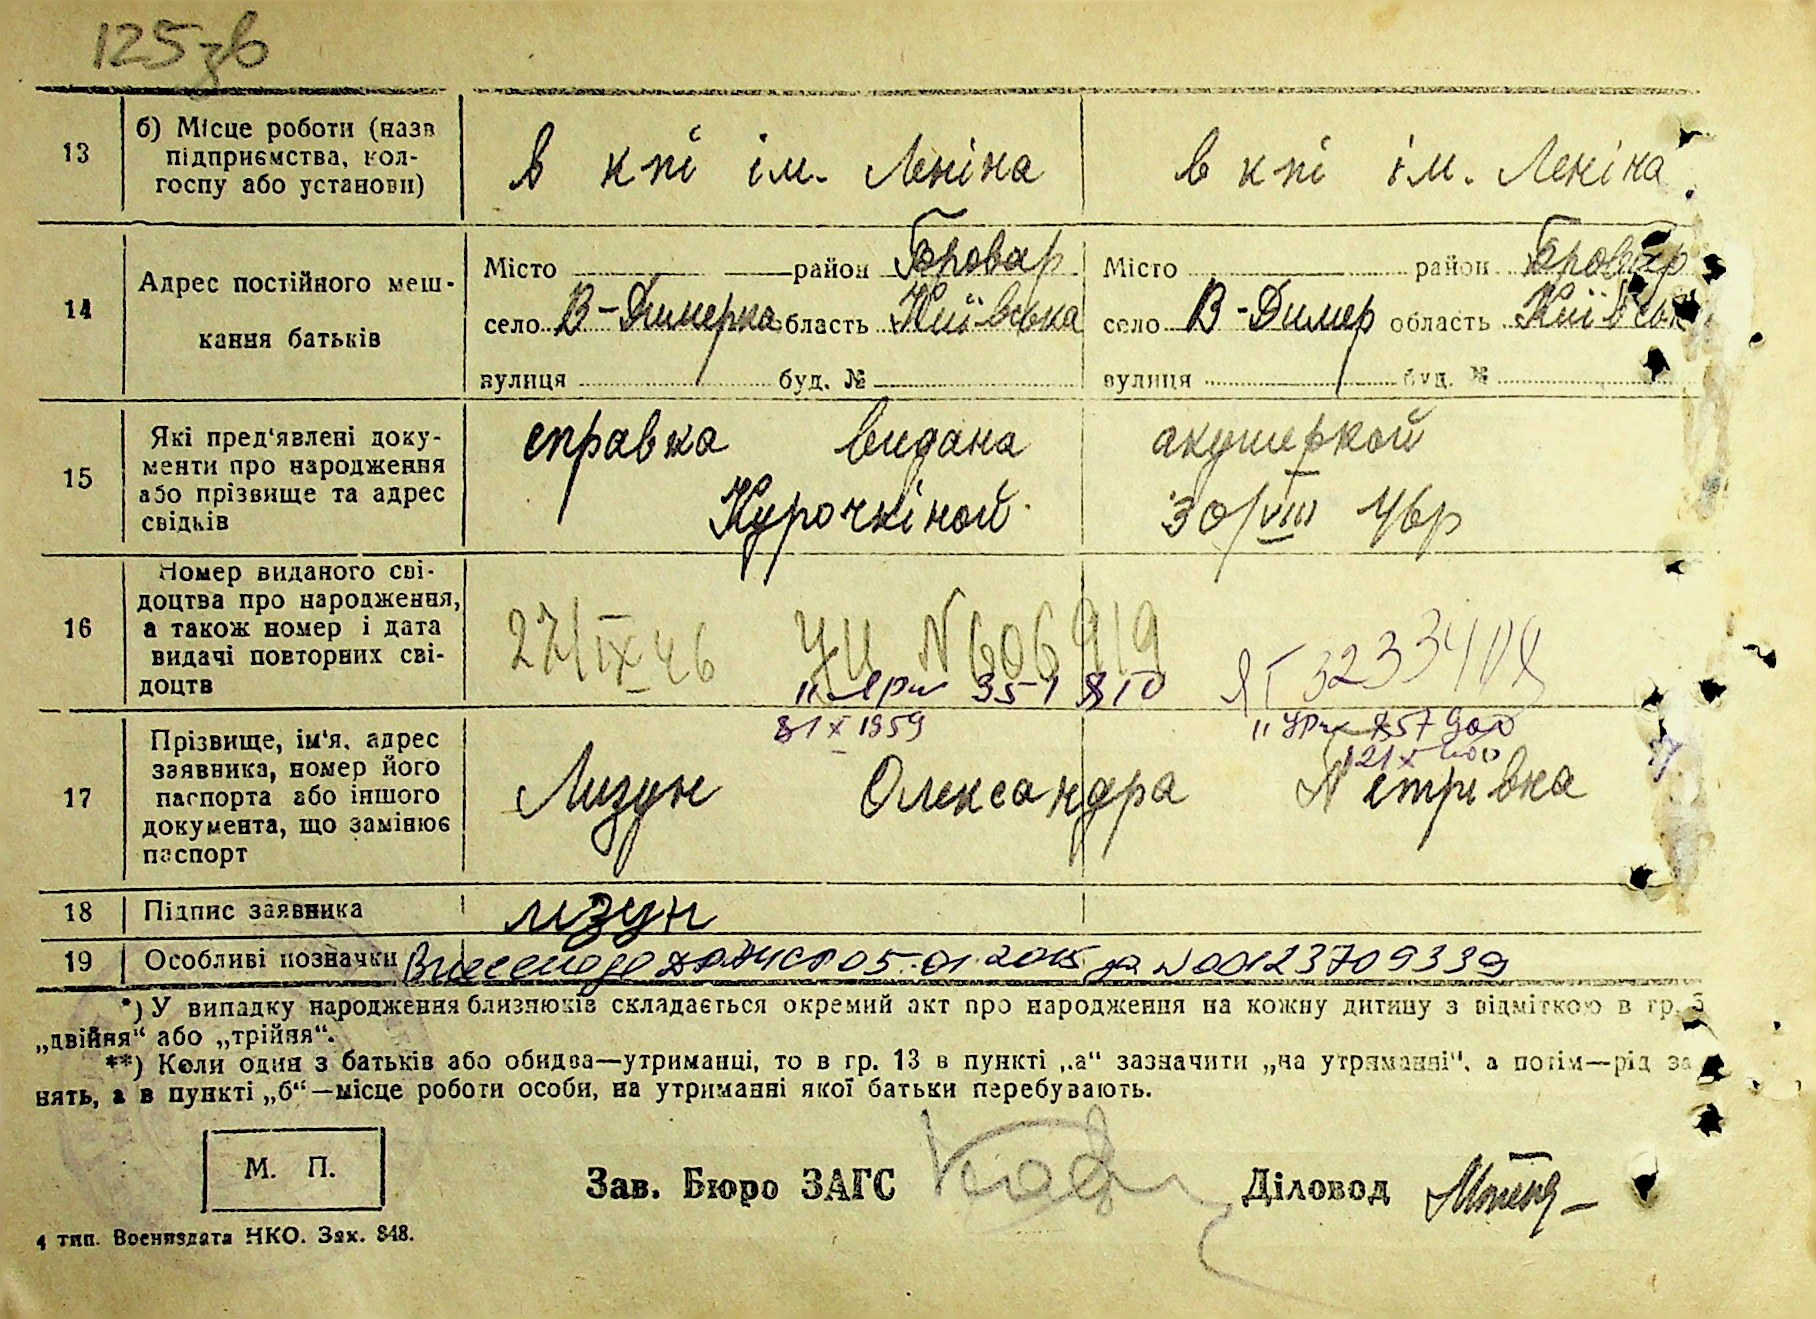 125зв
13 б) Місце роботи (назв підприємства, кол-госпу або установи) в кпі ім. Леніна в кпі ім. Леніна
14 Адрес постійного меш-кання батьків
Місто район Бровар Місто район Бровар
село В-Димерка область Київська село В-Димер область Київськ
вулиця буд. № вулиця буд. №
15 Які пред'явлені доку-менти про народження або прізвище та адрес свідків
справка видана акушеркой
Курочкіной 30/VIII 46р
16 Номер виданого сві-доцтва про народження, а також номер і дата видачі повторних сві-доцтв
27/IX 46 УЦ N 606919
351 810
31 X 1959
17 Прізвище, ім'я, адрес заявника, номер його паспорта або іншого документа, що замінює паспорт
Лизун Олександра Петрівна
18 Підпис заявника лизун
19 Особливі позначки Внесено до ДРАЦСГ 05.01.2015 за N00123709339
*) У випадку народження близнюків складається окремий акт про народження на кожну дитину з відміткою в гр. 5
„двійня“ або „трійня“.
**) Коли один з батьків або обидва—утриманці, то в гр. 13 в пункті „а“ зазначити „на утриманні“, а потім—рід за
нять, а в пункті „б“—місце роботи особи, на утриманні якої батьки перебувають.
М. П.
Зав. Бюро ЗАГС Діловод
4 тип. Воениздата НКО. Зак. 848.